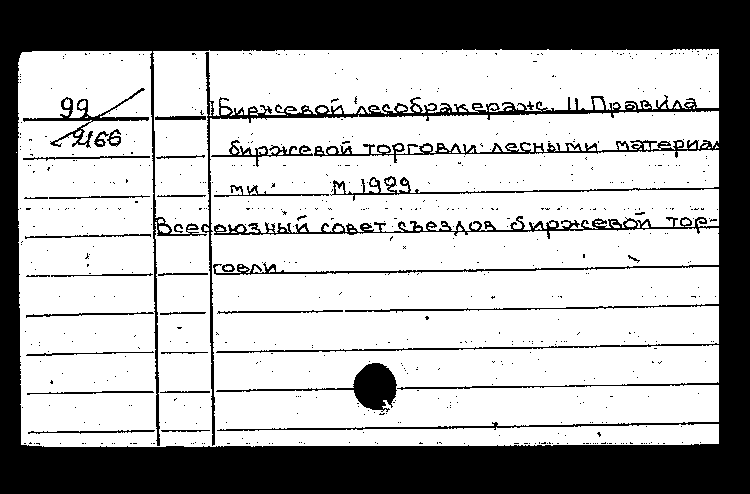 99
2166
Биржевой лесобракераж. II. Правила
биржевой торговли лесными материал
ми. М., 1929.
Всесоюзный совет съездов биржевой тор-
говли.